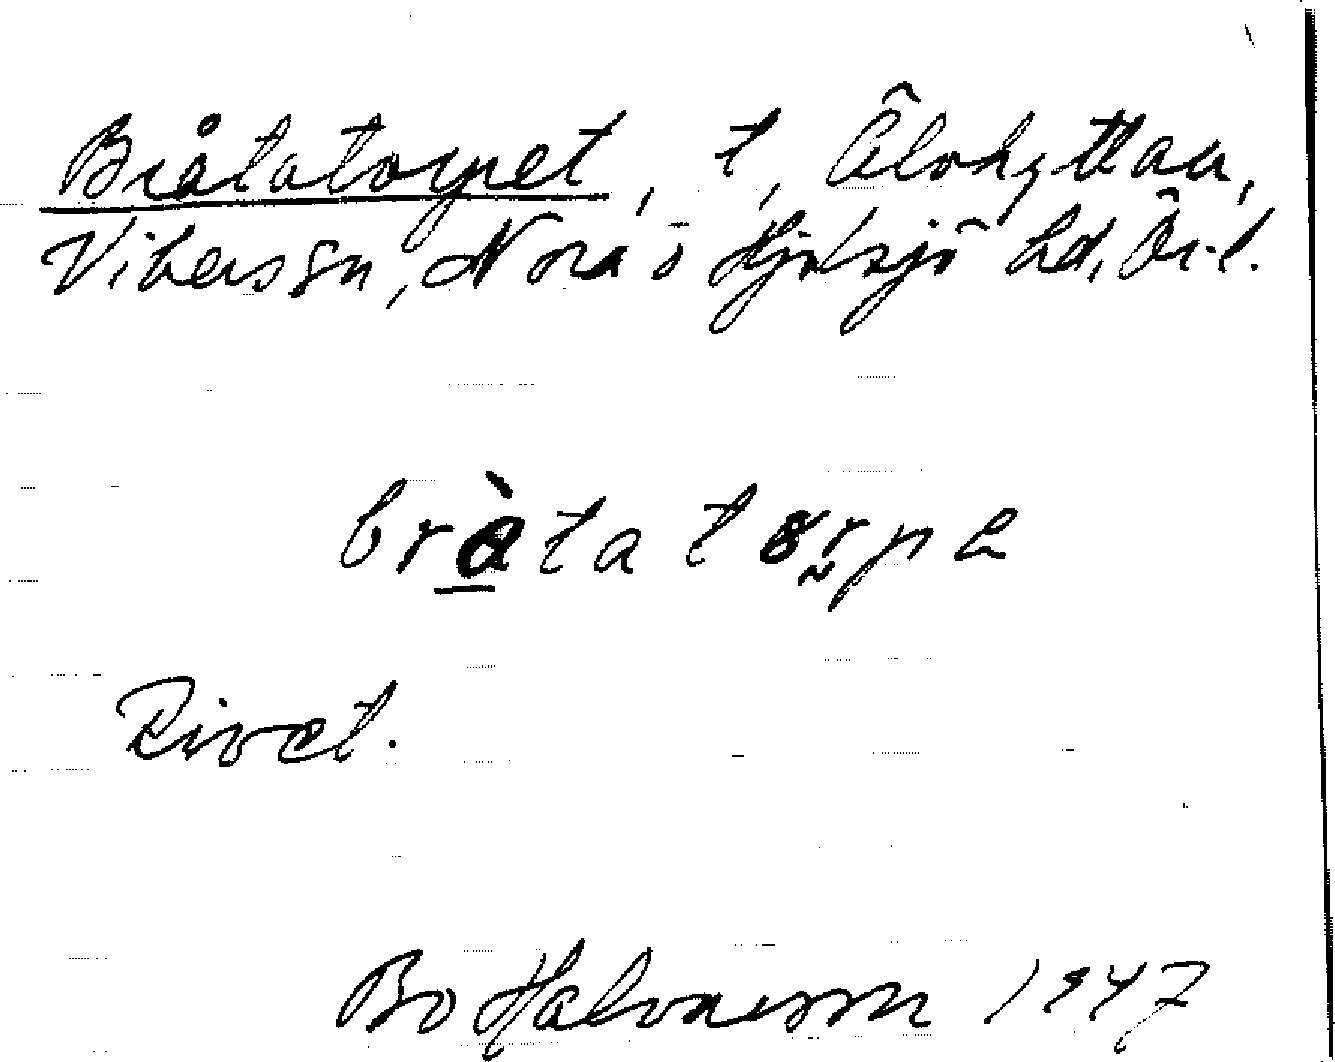 Bråtatorpet, t, Älvhyttan,
Vikers sn, Nora o Hjulsjö hd, Ör. l.
bràtatɷrpe
Rivet.
Bo Halvarsson 1947